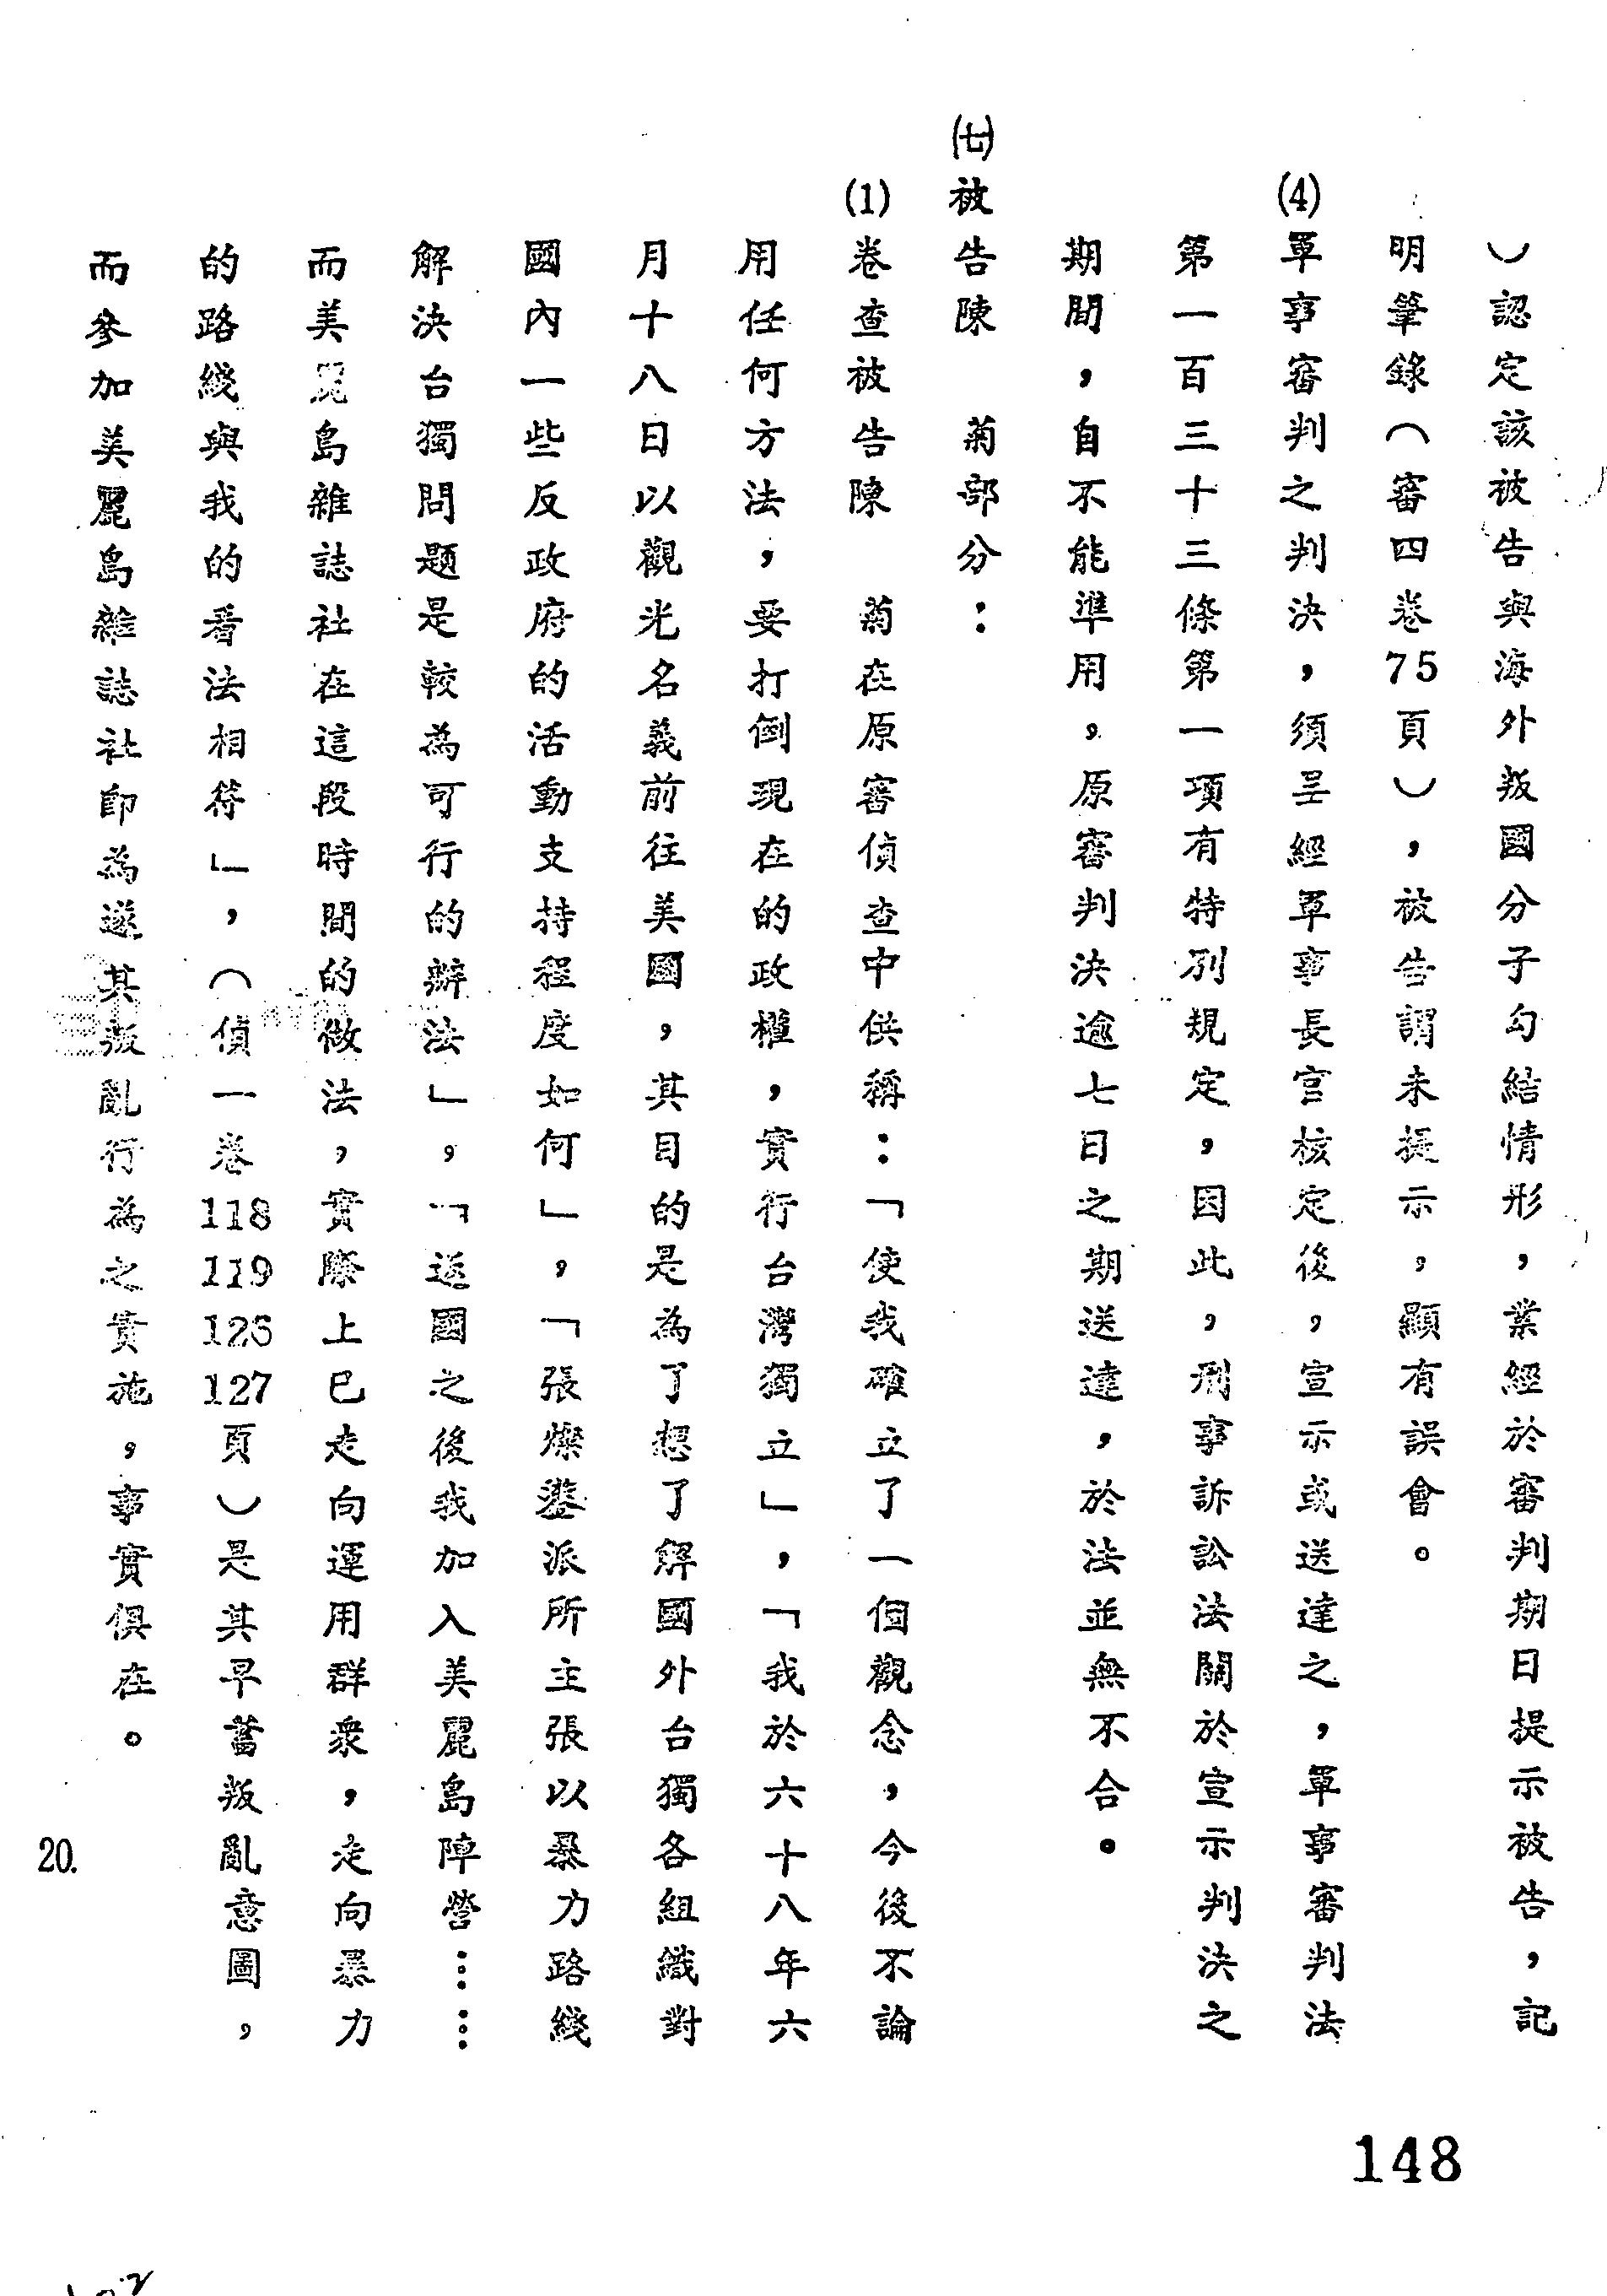 ）認定該被告與海外叛國分子勾結情形，業經於審判期日提示被告，記
明筆錄（審四卷75頁），被告謂未提示，顯有誤會。
(4)軍事審判之判決，須呈經軍事長官核定後，宣示或送達之，軍事審判法
第一百三十三條第一項有特別規定，因此，刑事訴訟法關於宣示判決之
期間，自不能準用。原審判決逾七日之期送達，於法並無不合。
(七)被告陳　菊部分：
(1)卷查被告陳　菊在原審偵查中供稱：「使我確立了一個觀念，今後不論
用任何方法，要打倒現在的政權，實行台灣獨立」，「我於六十八年六
月十八日以觀光名義前往美國，其目的是為了想了解國外台獨各組織對
國內一些反政府的活動支持程度如何」，「張燦鍙派所主張以暴力路綫
解決台獨問題是較為可行的辦法」，「返國之後我加入美麗島陣營……
而美麗島雜誌社在這段時間的做法，實際上已走向運用群衆，走向暴力
的路綫與我的看法相符」，（偵一卷118 119 126 127頁）是其早蓄叛亂意圖，
而參加美麗島雜誌社即為遂其叛亂行為之實施，事實俱在。
20.
148